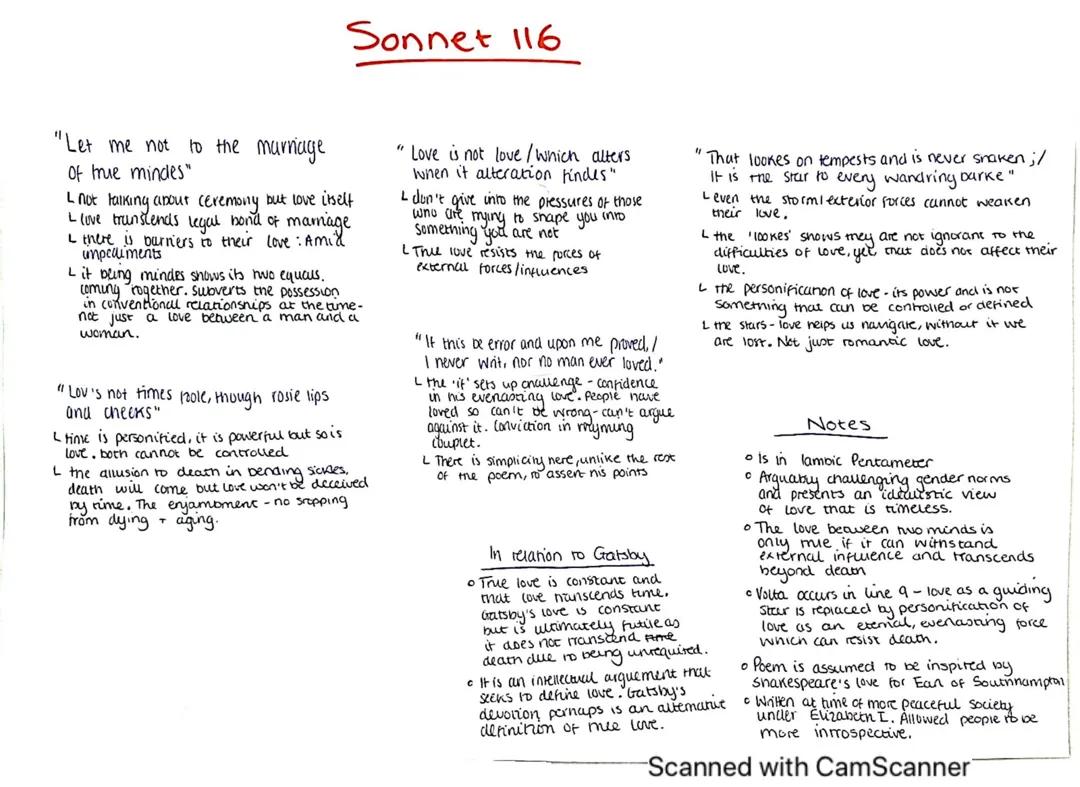 Sonnet 116
"Let me not to the marriage
Of true mindes"
L Not talking about ceremony but love itself
L love transcends legal bond of marriage
L there is barriers to their love : Amid
impediments
L it being mindes shows its two equals.
coming together. Subverts the possession
in conventional relationships at the time-
not just a love between a man and a
woman.
"Lov's not times foole, though rosie lips
and cheeks"
L time is personified, it is powerful but so is
love. both cannot be controlled
L the allusion to death in bending sickles,
death will come but love won't be deceived
by time. The enjambment - no stopping
from dying + aging.
"Love is not love / Which alters
when it alteration findes"
L don't give into the pressures of those
who are trying to shape you into
something you are not
L True love resists the forces of
external forces/influences
"If this be error and upon me proved, /
I never writ, nor no man ever loved."
L the 'if' sets up challenge - confidence
in his everlasting love. People have
loved so can't be wrong - can't argue
against it. Conviction in rhyming
couplet.
L There is simplicity here, unlike the rest
of the poem, to assert his points
In relation to Gatsby
o True love is constant and
that love transcends time.
Gatsby's love is constant
but is ultimately futile as
it does not transcend time
death due to being unrequired.
o It is an intellectual arguement that
seeks to define love. Gatsby's
devotion perhaps is an alternative
definition of true love.
"That lookes on tempests and is never shaken ; /
It is the star to every wandring barke"
L even the storm/exterior forces cannot weaken
their love.
L the 'lookes' shows they are not ignorant to the
difficulties of love, yet that does not affect their
love.
L the personification of love - its power and is not
something that can be controlled or defined
L the stars - love helps us navigate, without it we
are lost. Not just romantic love.
Notes
o Is in Iambic Pentameter
o Arguably challenging gender norms
and presents an idealistic view
of love that is timeless.
o The love between two minds is
only true if it can withstand
external influence and transcends
beyond death
o Volta occurs in line 9 - love as a guiding
star is replaced by personification of
love as an eternal, everlasting force
which can resist death.
o Poem is assumed to be inspired by
Shakespeare's love for Earl of Southhampton
o Written at time of more peaceful society
under Elizabeth I. Allowed people to be
more introspective.
Scanned with CamScanner